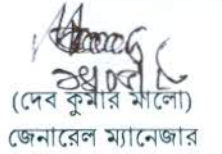 (দেব কুমার মালো)
জেনারেল ম্যানেজার